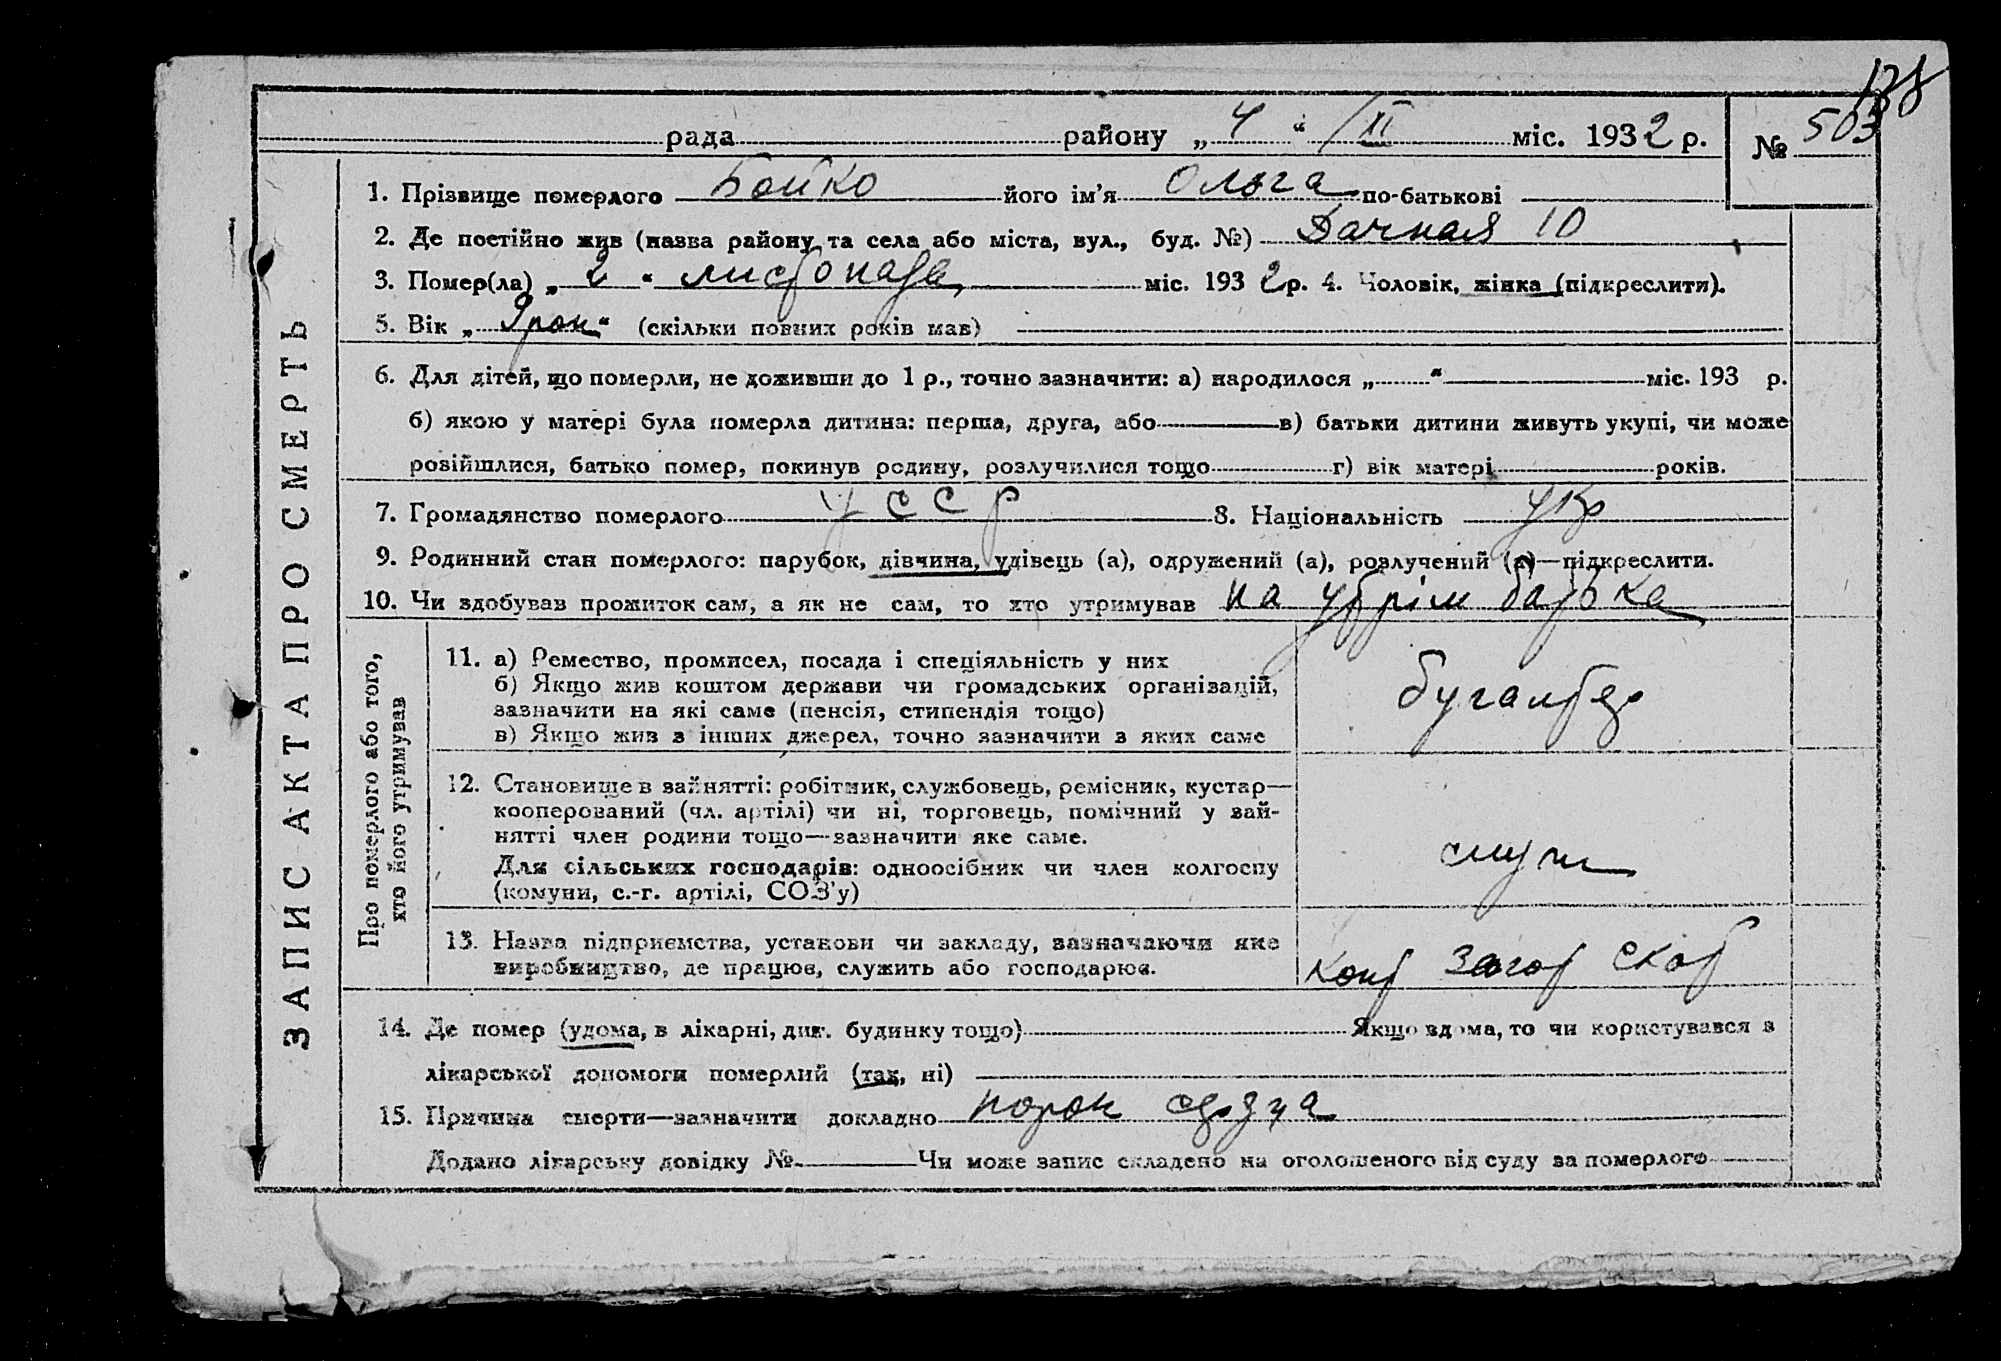 138
рада району „4“ /XI міс. 1932 р. № 503
1. Прізвище померлого Бойко його ім’я Ольга по-батькові
2. Де постійно жив (назва району та села або міста, вул., буд. №) Дачная 10
3. Помер(ла) „2“ листопада міс. 1932 р. 4. Чоловік, жінка (підкреслити).
5. Вік „9 рок“ (скільки повних років мав)
6. Для дітей, що померли, не доживши до 1 р., точно зазначити: а) народилося „ “ міс. 193 р.
б) якою у матері була померла дитина: перша, друга, або в) батьки дитини живуть укупі, чи може
розійшлися, батько помер, покинув родину, розлучилися тощо г) вік матері років.
7. Громадянство померлого УССР 8. Національність укр
9. Родинний стан померлого: парубок, дівчина, удівець (а), одружений (а), розлучений (а)—підкреслити.
10. Чи здобував прожиток сам, а як не сам, то хто утримував на утрім батька
ЗАПИС АКТА ПРО СМЕРТЬ
Про померлого або того,
хто його утримував
11. а) Ремество, промисел, посада і спеціяльність у них
б) Якщо жив коштом держави чи громадських організацій,
зазначити на які саме (пенсія, стипендія тощо)
в) Якщо жив з інших джерел, точно зазначити з яких саме
бугалтер
12. Становище в занятті: робітник, службовець, ремісник, кустар—
кооперований (чл. артілі) чи ні, торговець, помічний у зай-
нятті член родини тощо—зазначити яке саме.
Для сільських господарів: одноосібник чи член колгоспу
(комуни, с.-г. артілі, СОЗ’у)
служ
13. Назва підприємства, установи чи закладу, зазначаючи яке
виробництво, де працює, служить або господарює.
Загот Скот
14. Де помер (удома, в лікарні, дит. будинку тощо) Якщо вдома, то чи користувався з
лікарської допомоги померлий (так, ні)
15. Причина смерти—зазначити докладно порок сердца
Додано лікарську довідку № Чи може запис складено на оголошеного від суду за померлого